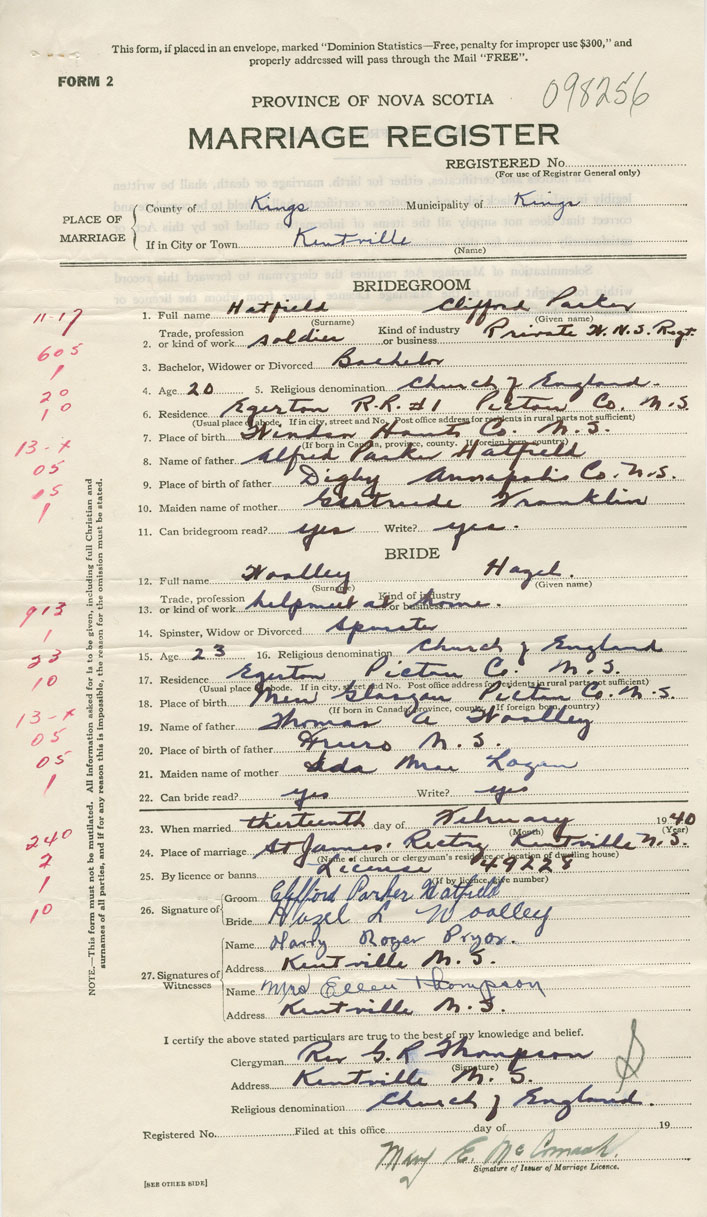 This form, if placed in an envelope, marked "Dominion Statistics—Free, penalty for improper use $300," and
properly addressed will pass through the Mail "FREE".
FORM 2
098256
PROVINCE OF NOVA SCOTIA
MARRIAGE REGISTER
REGISTERED No.
(For use of Registrar General only)
PLACE OF MARRIAGE
County of Kings Municipality of Kings
If in City or Town Kentville
(Name)
BRIDEGROOM
11-17
1. Full name Hatfield Clifford Parker
(Surname) (Given name)
605
2. Trade, profession or kind of work soldier Kind of industry or business Private W. N.S. Regt.
1
3. Bachelor, Widower or Divorced Bachelor
20
4. Age 20 5. Religious denomination Church of England.
10
6. Residence Egerton R.R. #1 Pictou Co. N.S.
(Usual place of abode. If in city, street and No. Post office address for residents in rural parts not sufficient)
13-x
7. Place of birth Windsor Hants Co. N.S.
(If born in Canada, province, county. If foreign born, country)
05
8. Name of father Alfred Parker Hatfield
05
9. Place of birth of father Digby Annapolis Co. N.S.
1
10. Maiden name of mother Gertrude Franklin
11. Can bridegroom read? yes Write? yes.
BRIDE
12. Full name Woolley Hazel.
(Surname) (Given name)
913
13. Trade, profession or kind of work helpmeet at home. Kind of industry or business
1
14. Spinster, Widow or Divorced Spinster
23
15. Age 23 16. Religious denomination Church of England
10
17. Residence Egerton Pictou Co. N.S.
(Usual place of abode. If in city, street and No. Post office address for residents in rural parts not sufficient)
13-x
18. Place of birth New Glasgow Pictou Co. N.S.
(If born in Canada, province, county. If foreign born, country)
05
19. Name of father Thomas A Woolley
05
20. Place of birth of father Truro N.S.
1
21. Maiden name of mother Ida Mae Logan
22. Can bride read? yes Write? yes
23. When married thirteenth day of February 1940
(Month) (Year)
240
24. Place of marriage St James. Rectry Kentville N.S.
(Name of church or clergyman's residence or location of dwelling house)
2
25. By licence or banns License 49228
(If by licence, give number)
1
10
26. Signature of
Groom Clifford Parker Hatfield
Bride Hazel L Woolley
27. Signatures of Witnesses
Name Harry Roger Pryor.
Address Kentville N.S.
Name Mrs Ellen Thompson
Address Kentville N.S.
I certify the above stated particulars are true to the best of my knowledge and belief.
Clergyman Rev G. R Thompson
(Signature)
Address Kentville N. S.
Religious denomination Church of England.
Registered No. Filed at this office day of 19
Mary E. McCormack
Signature of Issuer of Marriage Licence.
[SEE OTHER SIDE]
NOTE.—This form must not be mutilated. All information asked for is to be given, including full Christian and
surnames of all parties, and if for any reason this is impossible, the reason for the omission must be stated.